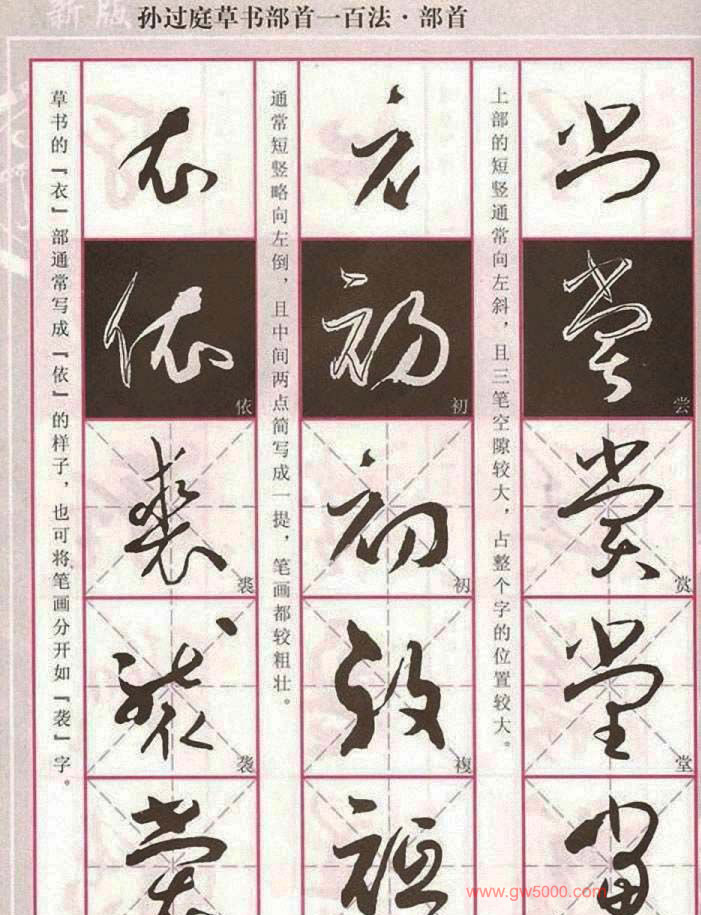 新版
孙过庭草书部首一百法·部首
上部的短竖通常向左斜，且三笔空隙较大，占整个字的位置较大。
尝
赏
堂
通常短竖略向左倒，且中间两点简写成一提，笔画都较粗壮。
初
初
複
草书的『衣』部通常写成『依』的样子，也可将笔画分开如『袭』字。
依
裘
袭
www.gw5000.com